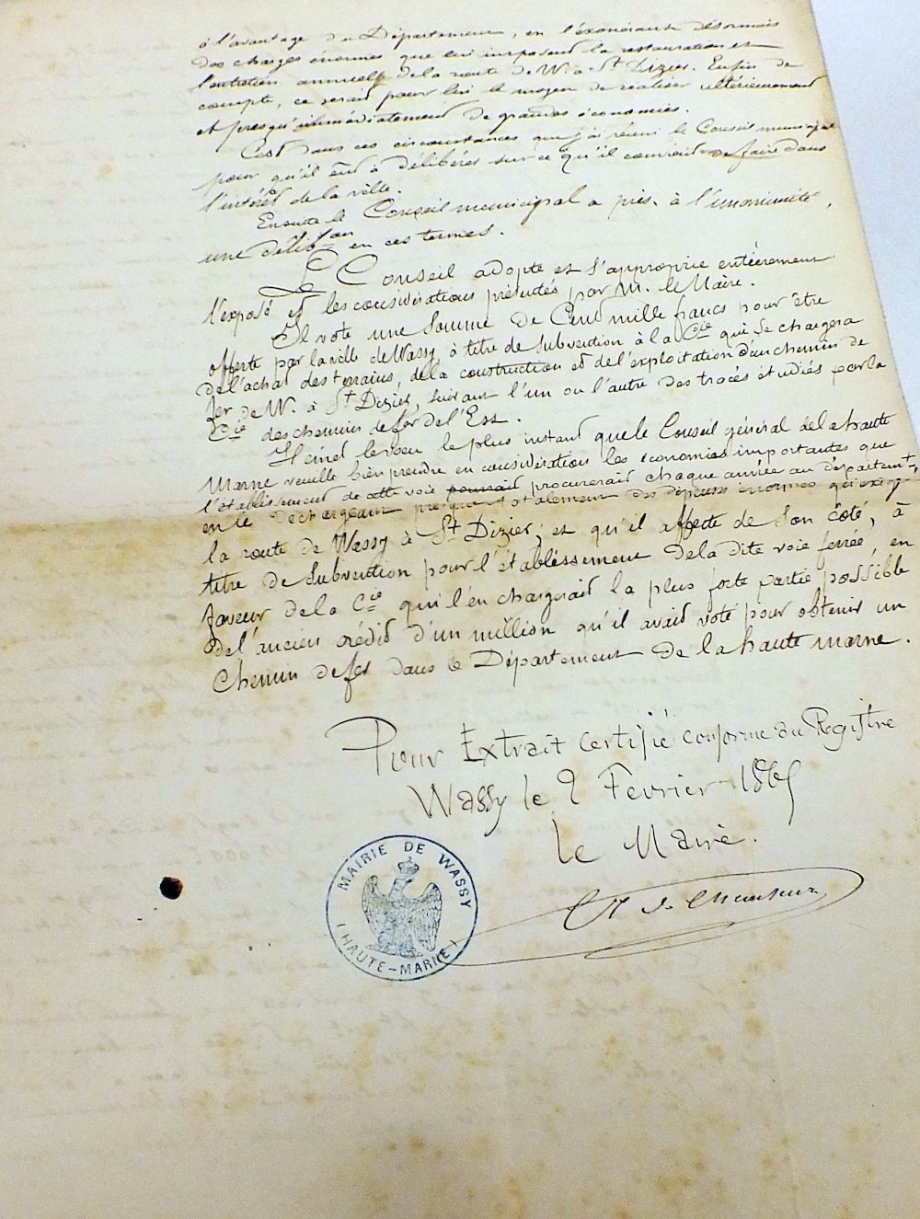 à l'avantage du Département, en l'exonérant désormais
des charges énormes que lui imposent la restauration et
l'entretien annuelle de la route de W. à St Dizier. Enfin de
compte, ce serait pour lui le moyen de réaliser ultérieurement
et presqu'immédiatement de grandes économies.
C'est dans ces circonstances que j'ai réuni le Conseil municipal
pour qu'il eut à délibérer sur ce qu'il convient de faire dans
l'intérêt de la ville.
Ensuite le Conseil municipal a pris, à l'unanimité,
une délibon en ces termes.
Le Conseil adopte et s'approprie entièrement
l'exposé et les considérations présentés par M. le Maire.
Il vote une somme de Cent mille francs pour être
offerte par la ville de Wassy, à titre de subvention à la Cie qui se chargera
de l'achat des terrains, de la construction et de l'exploitation d'un chemin de
fer de W. à St Dizier, suivant l'un ou l'autre des tracés étudiés par la
Cie des chemins de fer de l'Est.
Il émet le voeu le plus instant que le Conseil général de la haute
Marne veuille bien prendre en considération les économies importantes que
l'établissement de cette voie pourrait procurerait chaque année au départemt,
en le déchargeant presque totalement des dépenses énormes qu'exige
la route de Wassy à St Dizier, et qu'il affecte de son côté, à
titre de subvention pour l'établissement de la dite voie ferrée, en
faveur de la Cie qui l'en chargerait la plus forte partie possible
de l'ancien crédit d'un million qu'il avait voté pour obtenir un
Chemin de fer dans le Département de la haute marne.
Pour Extrait certifié conforme au Registre
Wassy le 2 Fevrier 1865
Le Maire.
MAIRIE DE WASSY
(HAUTE-MARNE)